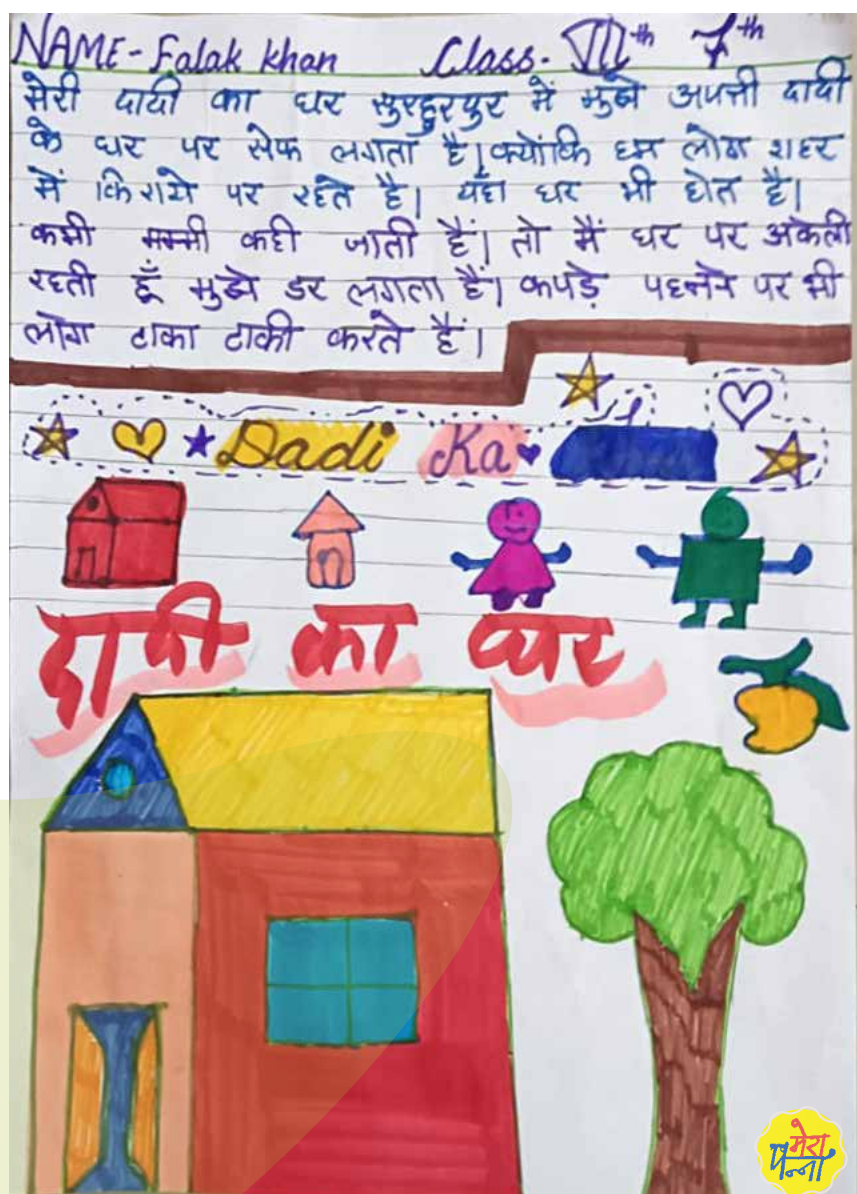 NAME- Falak khan Class- VII th 7 th
मेरी दादी का घर सुरहुरपुर में मुझे अपनी दादी
के घर पर सेफ लगता है। क्योंकि हम लोग शहर
में किराये पर रहते है। यहाँ घर भी होत है।
कभी मम्मी कही जाती हैं। तो मैं घर पर अकेली
रहती हूँ मुझे डर लगता हैं। कपड़े पहनने पर भी
लोग टाका टाकी करते हैं।
Dadi Ka
दादी का घर
मेरा
पन्ना